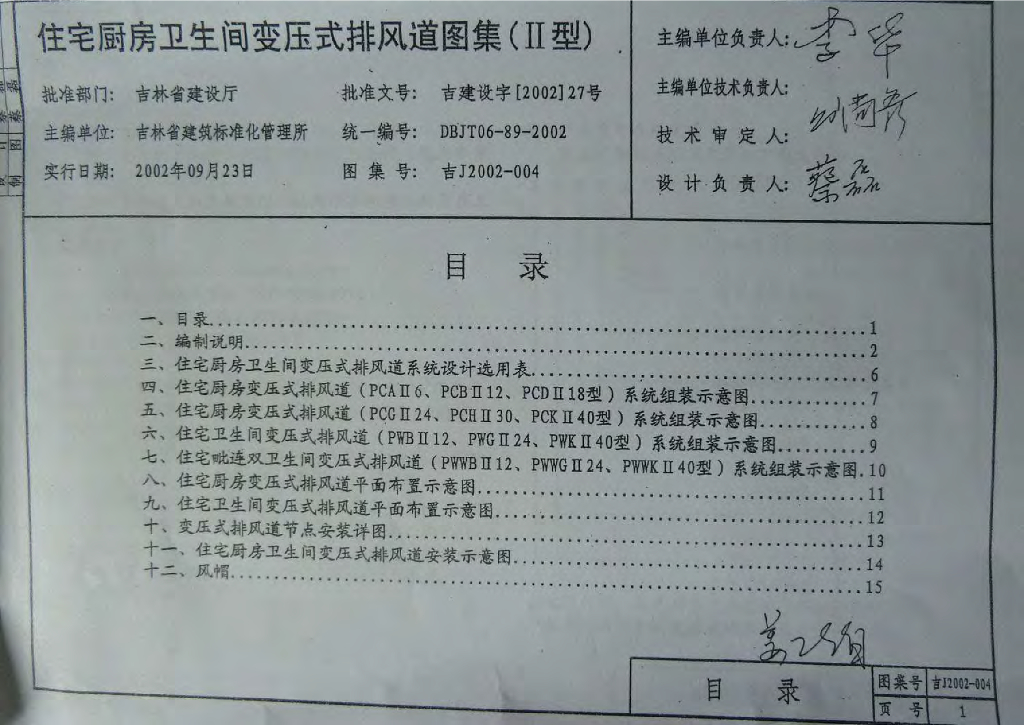 住宅厨房卫生间变压式排风道图集(Ⅱ型)
批准部门: 吉林省建设厅 批准文号: 吉建设字[2002]27号
主编单位: 吉林省建筑标准化管理所 统一编号: DBJT06-89-2002
实行日期: 2002年09月23日 图 集 号: 吉J2002-004
主编单位负责人: 李华
主编单位技术负责人:
技 术 审 定 人:
设 计 负 责 人: 蔡磊
目 录
一、目录..................1
二、编制说明..................2
三、住宅厨房卫生间变压式排风道系统设计选用表..................6
四、住宅厨房变压式排风道(PCAⅡ6、PCBⅡ12、PCDⅡ18型)系统组装示意图..................7
五、住宅厨房变压式排风道(PCGⅡ24、PCHⅡ30、PCKⅡ40型)系统组装示意图..................8
六、住宅卫生间变压式排风道(PWBⅡ12、PWGⅡ24、PWKⅡ40型)系统组装示意图..................9
七、住宅毗连双卫生间变压式排风道(PWWBⅡ12、PWWGⅡ24、PWWKⅡ40型)系统组装示意图.10
八、住宅厨房变压式排风道平面布置示意图..................11
九、住宅卫生间变压式排风道平面布置示意图..................12
十、变压式排风道节点安装详图..................13
十一、住宅厨房卫生间变压式排风道安装示意图..................14
十二、风帽..................15
目 录
图集号 吉J2002-004
页 号 1